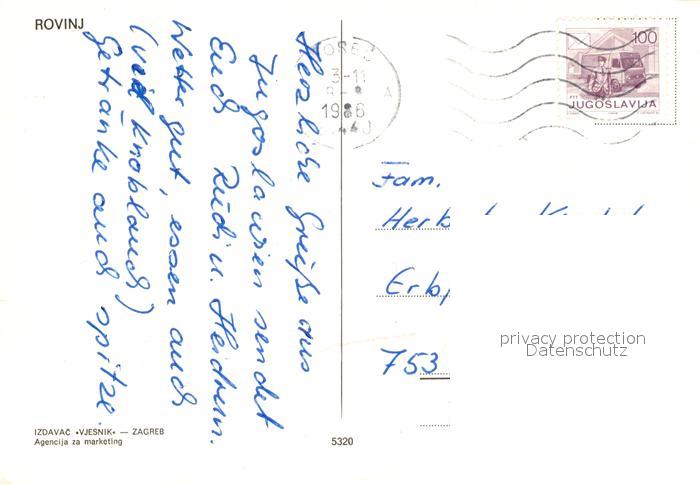 ROVINJ
Herzliche Grüße aus
Jugoslawien sendet
Euch Rudi u. Heidrun.
Wetter gut, essen auch
(viel Knoblauch)
Getränke auch spitze.
3-11
1986
100
JUGOSLAVIJA
Fam.
Erb
753
privacy protection
Datenschutz
IZDAVAČ «VJESNIK» — ZAGREB
Agencija za marketing
5320